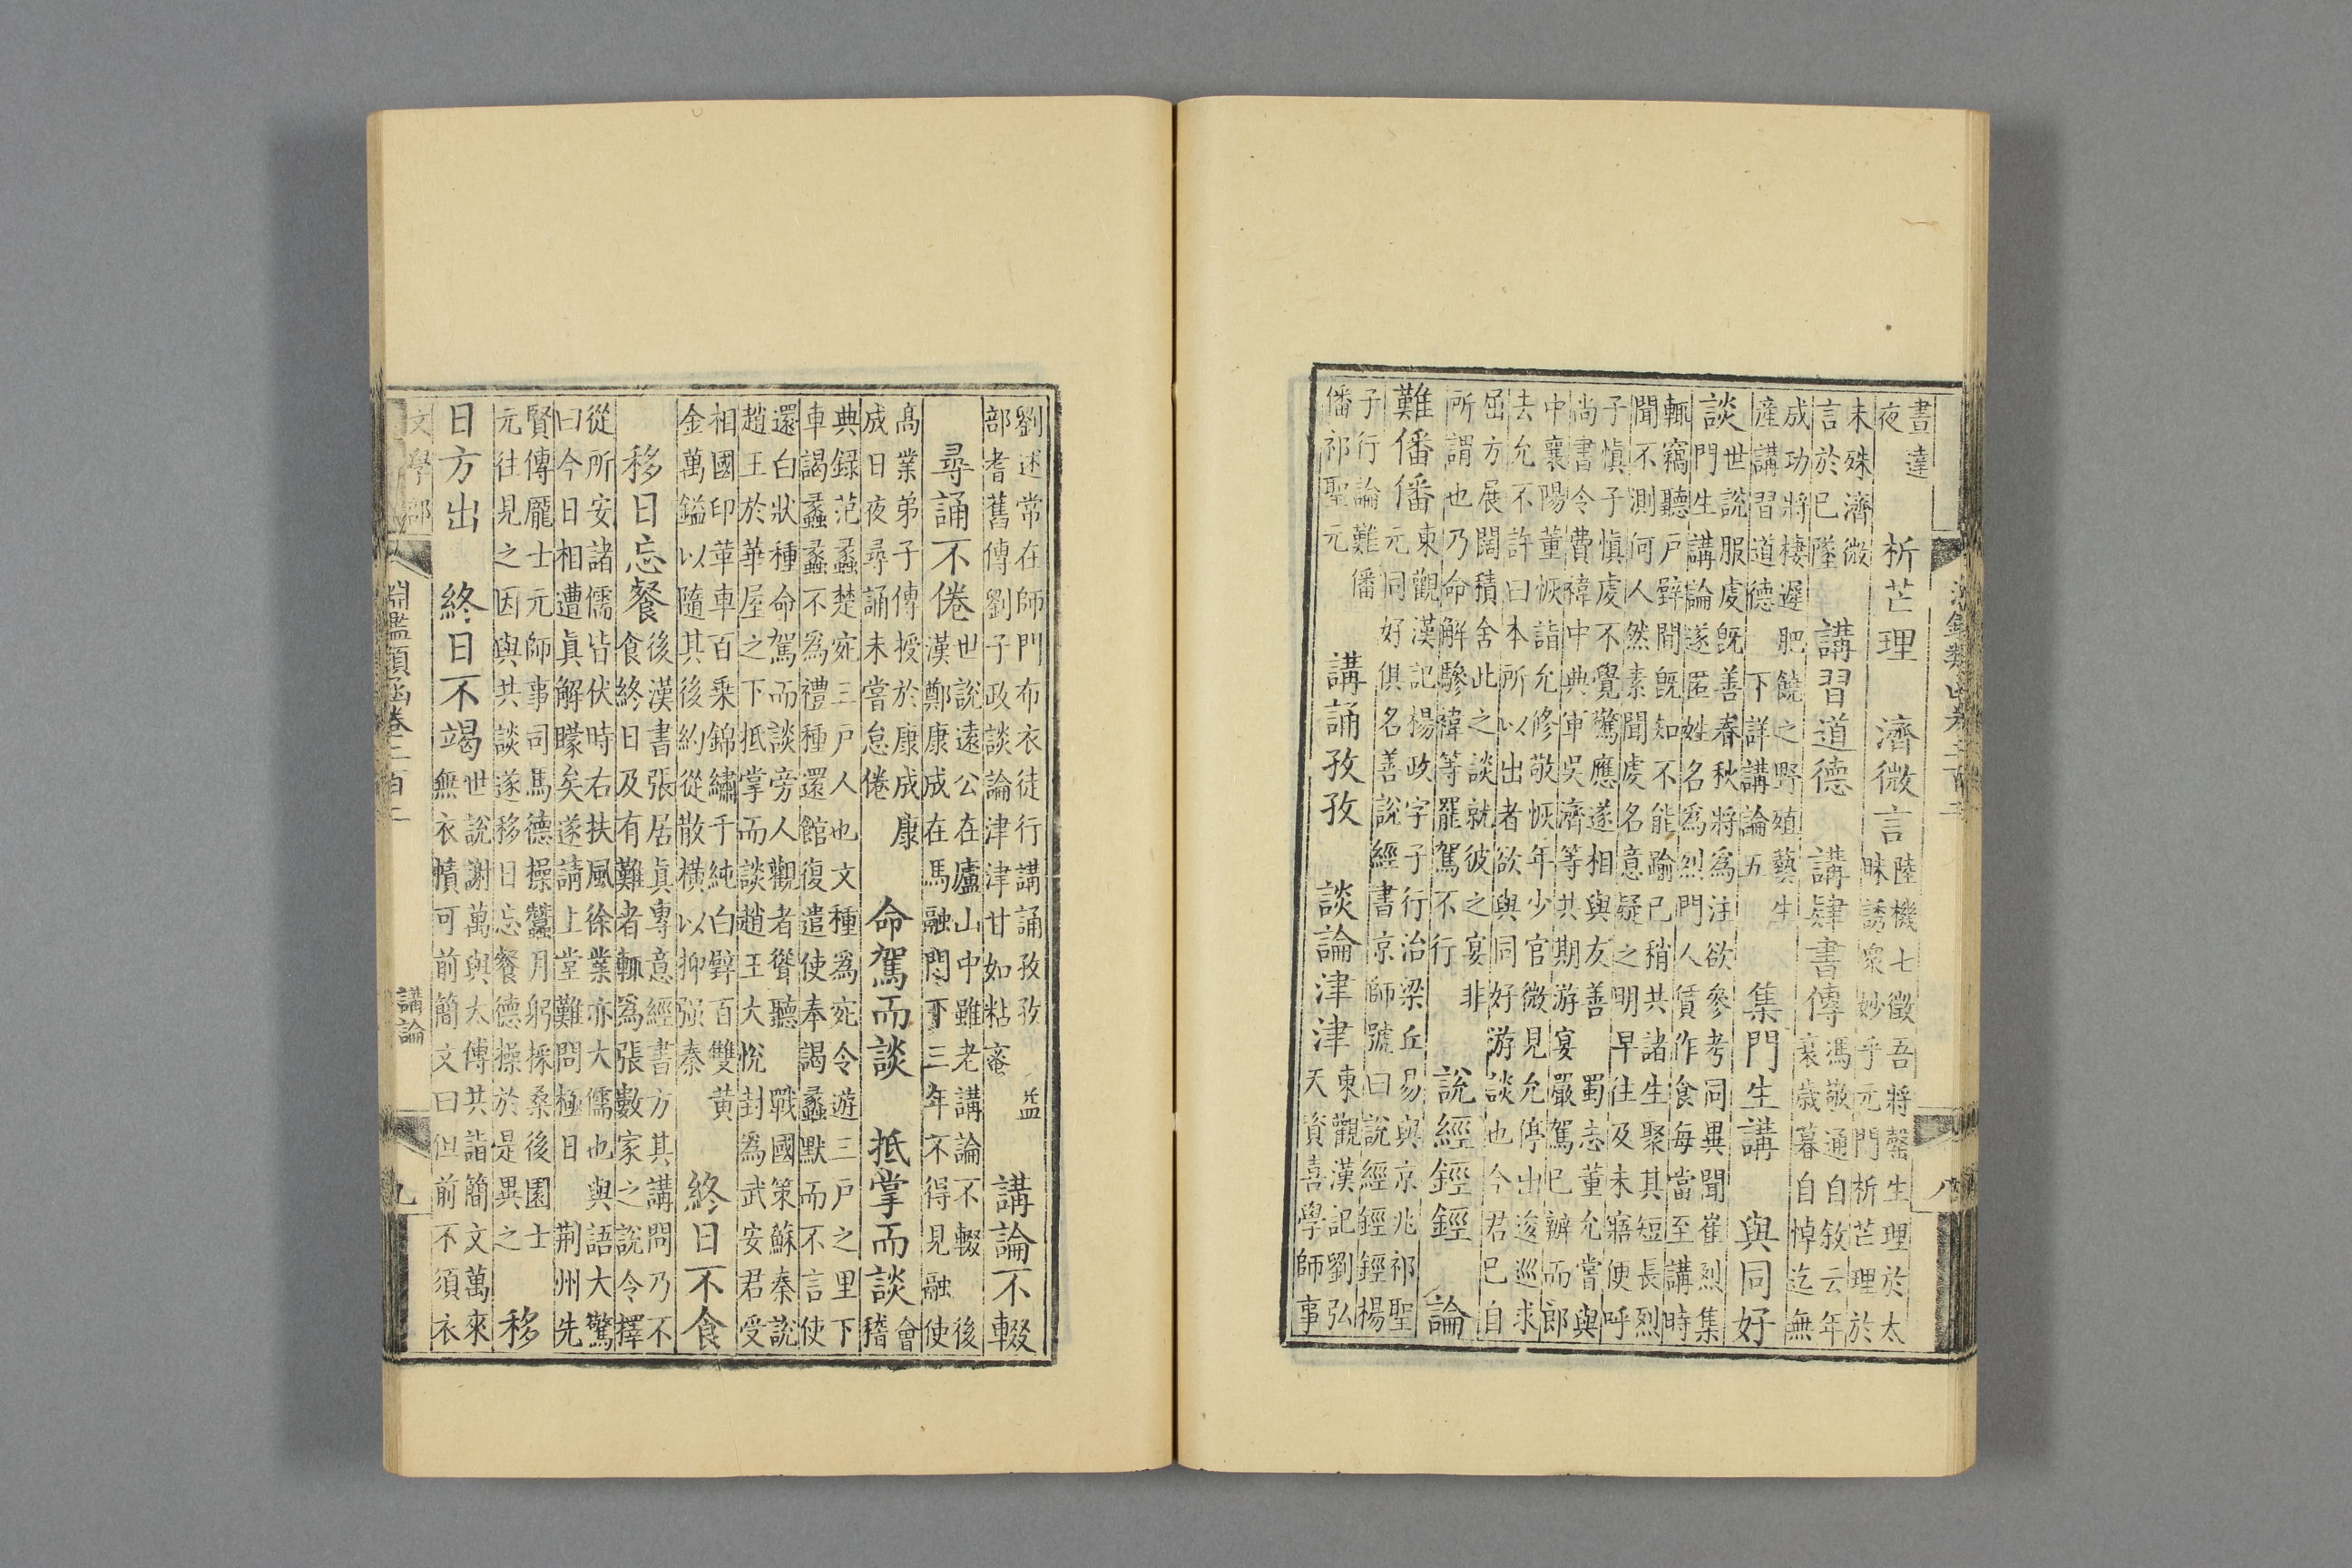 淵鑑類函卷二百二
八
晝達
夜
析芒理　濟微言
陸機七徵吾將罄生理於太
昧誘衆妙乎元門析芒理於
未殊濟微
言於已墜
講習道德　講肄書傳
馮敬通自敘云年
衰歲暮自悼迄無
成功將棲遲肥饒之野殖藝生
產講習道德　下詳講論五
集門生講　與同好
談
世說服虔旣善春秋將爲注欲參考同異聞崔烈集
門生講論遂匿姓名爲烈門人賃作食每當至講時
輒竊聽戶壁間旣知不能踰已稍共諸生聚其短長烈
聞不測何人然素聞虔名意疑之明早往及未寤便呼
子慎子慎虔不覺驚應遂相與友善　蜀志董允嘗與
尚書令費禕中典軍吳濟等共期游宴嚴駕已辦而郎
中襄陽董恢詣允修敬恢年少官微見允停出逡巡求
去允不許曰本所以出者欲與同好游談也今君已自
屈方展闊積舍此之談就彼之宴非
所謂也乃命解驂禕等罷駕不行
說經鏗鏗　論
難僠僠
東觀漢記楊政字子行治梁丘易與京兆祁聖
元同好俱名善說經書京師號曰說經鏗鏗楊
子行論難僠
僠祁聖元
講誦孜孜　談論津津
東觀漢記劉弘
天資喜學師事
劉述常在師門布衣徒行講誦孜孜　益
部耆舊傳劉子政談論津津甘如粘蜜
講論不輟
尋誦不倦
世說遠公在廬山中雖老講論不輟　後
漢鄭康成在馬融門下三年不得見融使
高業弟子傳授於康成康
成日夜尋誦未嘗怠倦
命駕而談　抵掌而談
會
稽
典錄范蠡楚宛三戶人也文種爲宛令遊三戶之里下
車謁蠡蠡不爲禮種還館復遣使奉謁蠡默而不言使
還白狀種命駕而談旁人觀者聳聽　戰國策蘇秦說
趙王於華屋之下抵掌而談趙王大悅封爲武安君受
相國印革車百乘錦繡千純白璧百雙黃
金萬鎰以隨其後約從散橫以抑强秦
終日不食
移日忘餐
後漢書張居眞專意經書方其講問乃不
食終日及有難者輒爲張數家之說令擇
從所安諸儒皆伏時右扶風徐業亦大儒也與語大驚
曰今日相遭眞解矇矣遂請上堂難問極日　荆州先
賢傳龐士元師事司馬德操蠶月躬採桑後園士
元往見之因與共談遂移日忘餐德操於是異之
移
日方出　終日不竭
世說謝萬與太傅共詣簡文萬來
無衣幘可前簡文曰但前不須衣
文學部
淵鑑類函卷二百二
講論
九